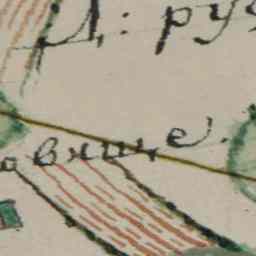 Д: руд
овище